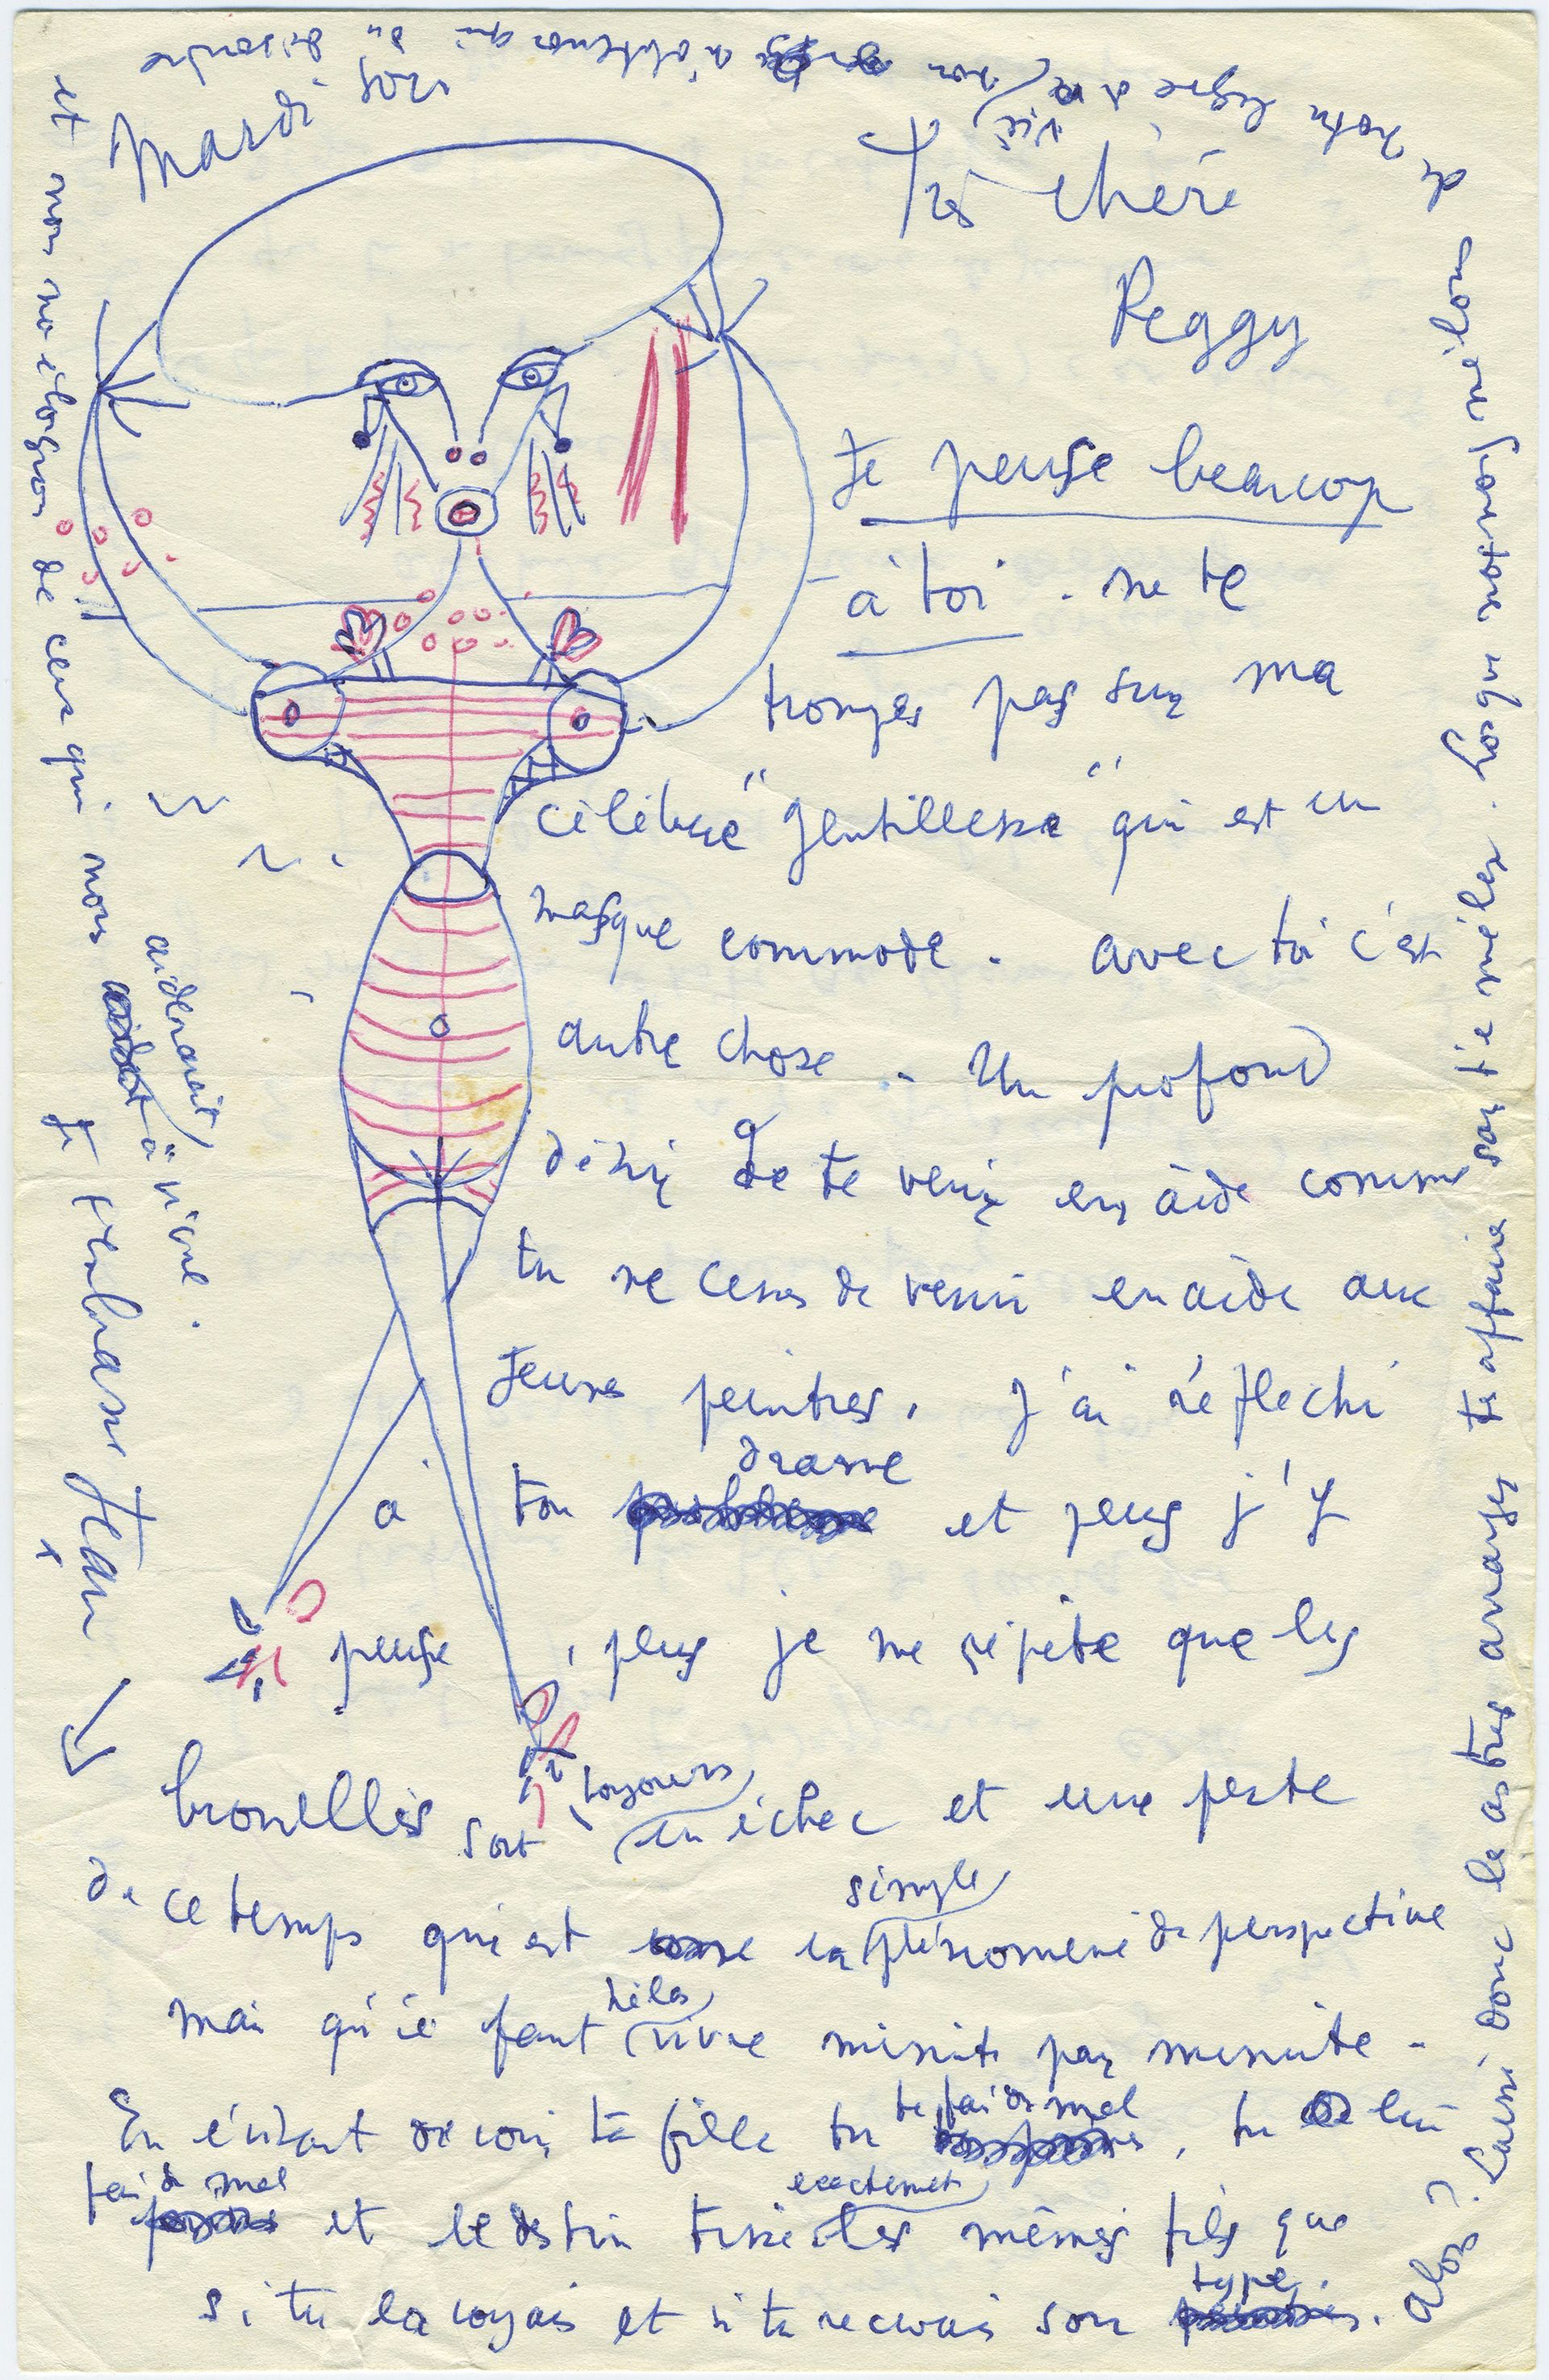 Mardi soir
Très chère
Peggy
Je pense beaucoup
à toi. ne te
trompes pas sur ma
célèbre "gentillesse" qui est un
masque commode. avec toi c'est
autre chose. Un profond
désir de te venir en aide comme
tu ne cesses de venir en aide aux
jeunes peintres. J'ai réfléchi
à ton drame et plus j'y
pense, plus je me répète que les
brouilles sont toujours un échec et une perte
de ce temps qui est un simple phénomène de perspective
mais qu'il faut hélas vivre minute par minute.
En évitant de voir ta fille tu te fais du mal, tu lui
fais du mal et le destin tisse exactement les mêmes fils que
si tu la voyais et si tu recevais son type.
Alors? Laisse donc les astres arranger tes affaires sans t'en mêler. Lorsque nous nous mêlons
de notre ligne de vie, nous n'obtenons que du désordre
et nous nous éloignons de ceux qui nous
aideraient à vivre.
Je t'embrasse Jean